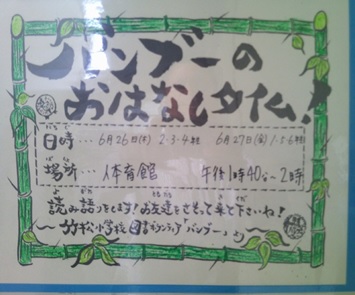 バンブーの
おはなしタイム!
日時…6月26日(木)2・3・4組 6月27日(金)1・5・6組
場所…体育館 午後1時40分~2時
読み語りをします!お友達をさそって来て下さいね!
~竹松小学校図書ボランティア「バンブー」より